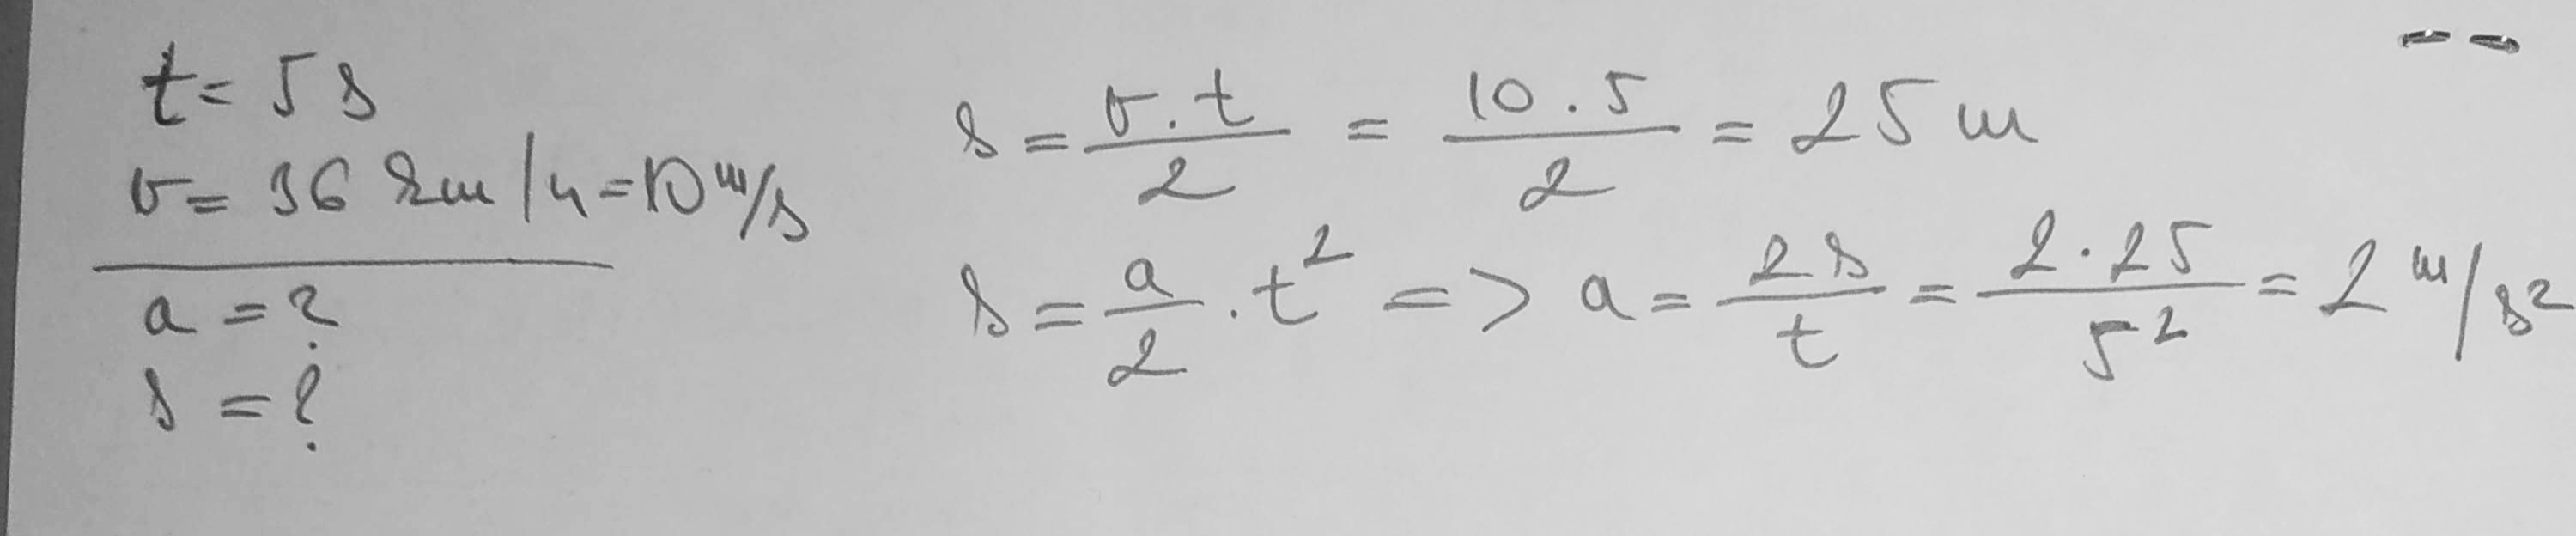 t = 5 s
v = 36 km/h = 10 m/s
a = ?
s = ?
s = v . t / 2 = 10 . 5 / 2 = 25 m
s = a / 2 . t² => a = 2s / t = 2 . 25 / 5² = 2 m/s²